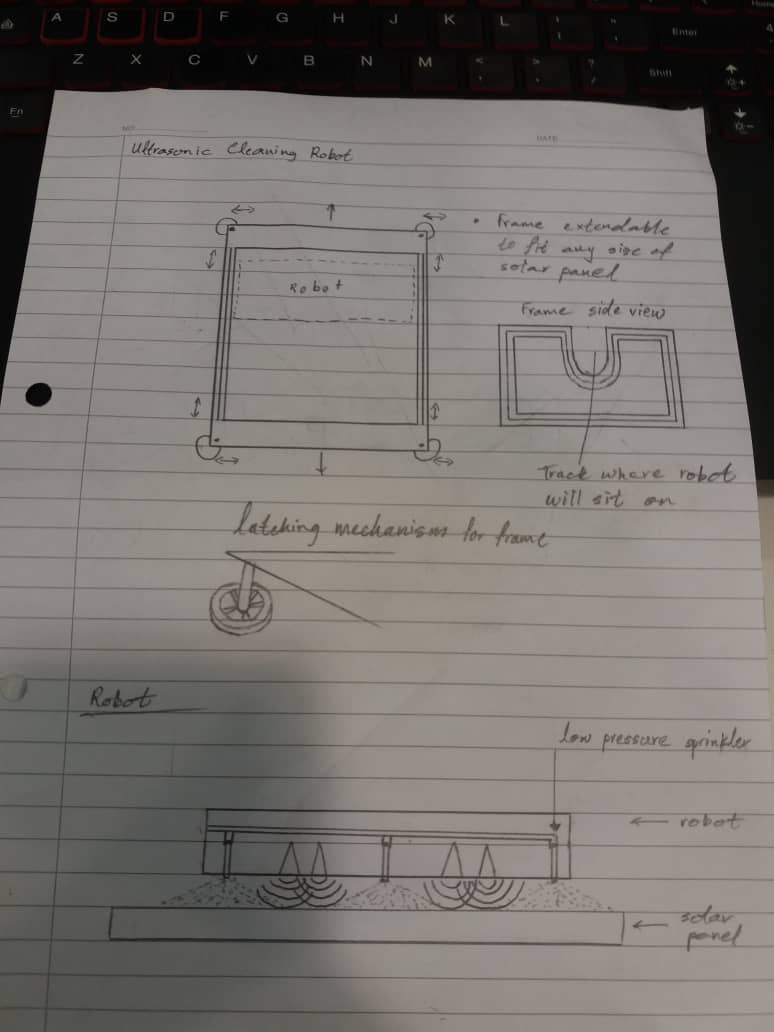 A S D F G H J K L : ; " ' Enter
Z X C V B N M < , > . ? / Shift
Fn
NO.
DATE
Ultrasonic Cleaning Robot
• Frame extendable
to fit any size of
solar panel
Robot
Frame side view
Track where robot
will sit on
latching mechanism for frame
Robot
low pressure sprinkler
robot
solar
panel